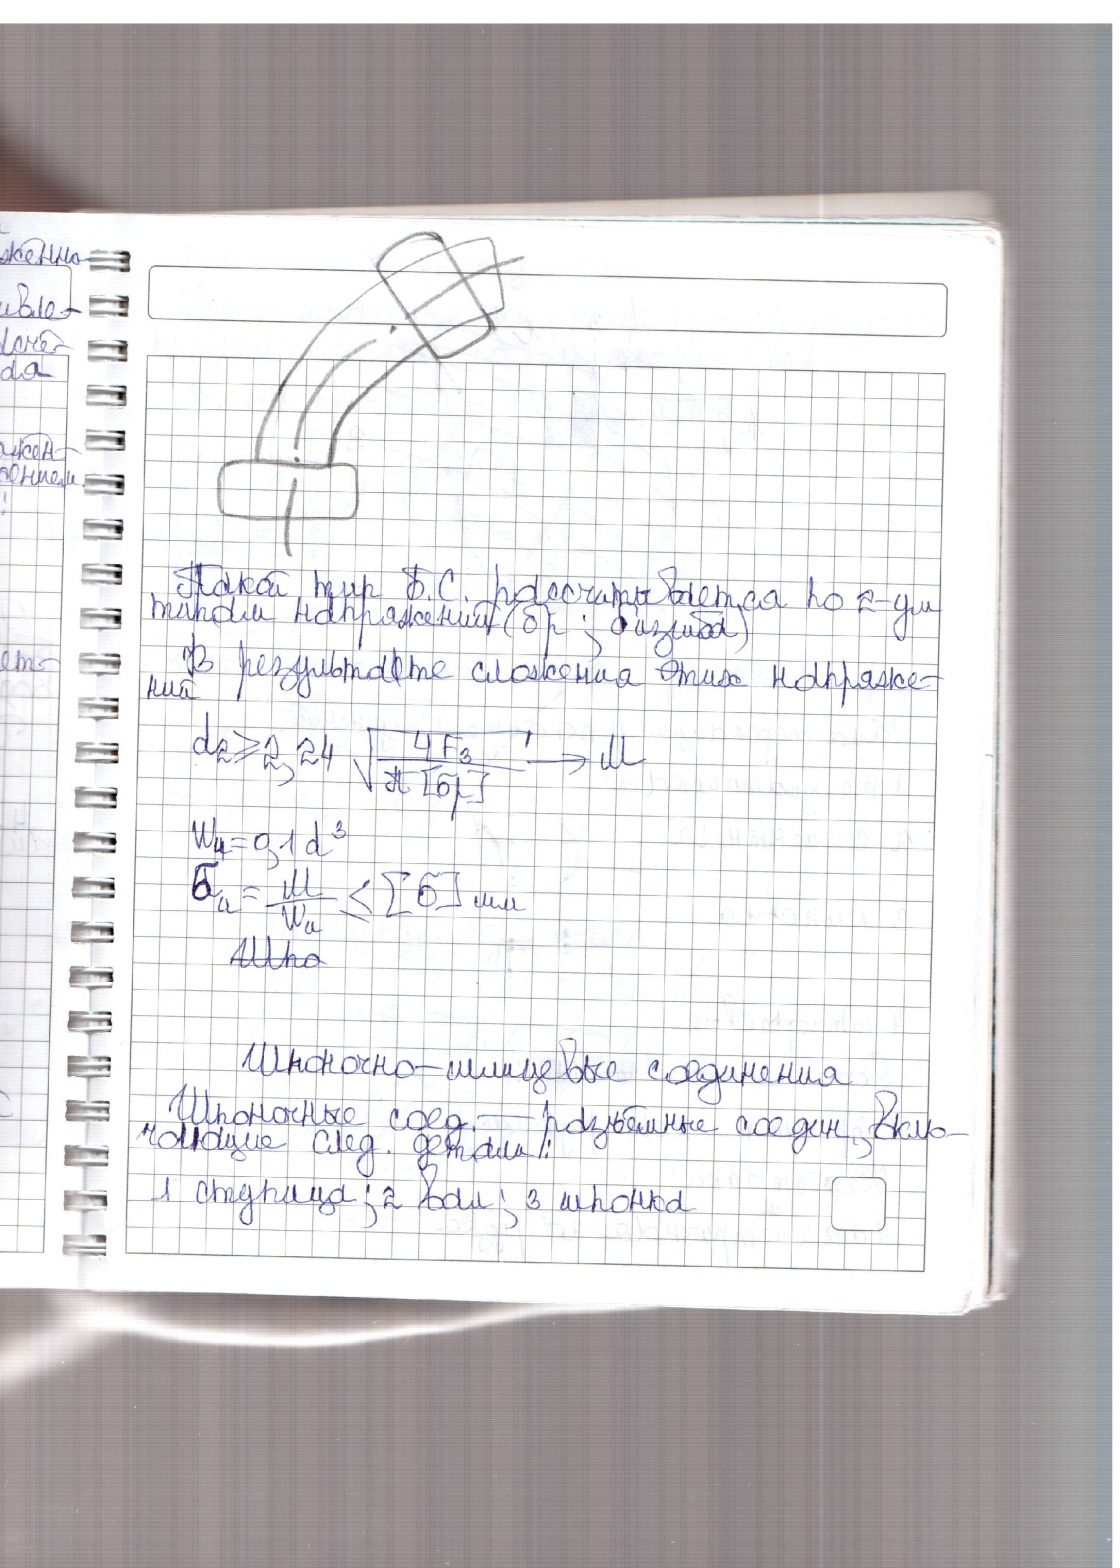 женно-
ивле-
да
ажен-
рением
!
Такой тип Б.С. рассчитывается по 2-ум
типам напряжений (бр ; бизгиба)
В результате сложения этих напряже-
ний
d2 ≥ 2,24 √(4F3 / π [бр]) → М
Wи = 0,1 d³
би = М / Wи ≤ [б] мм
Шпо
Шпоночно-шлицевые соединения
Шпоночные соед. — разъёмные соедин, вклю-
чающие след. детали:
1 ступица ; 2 вал ; 3 шпонка